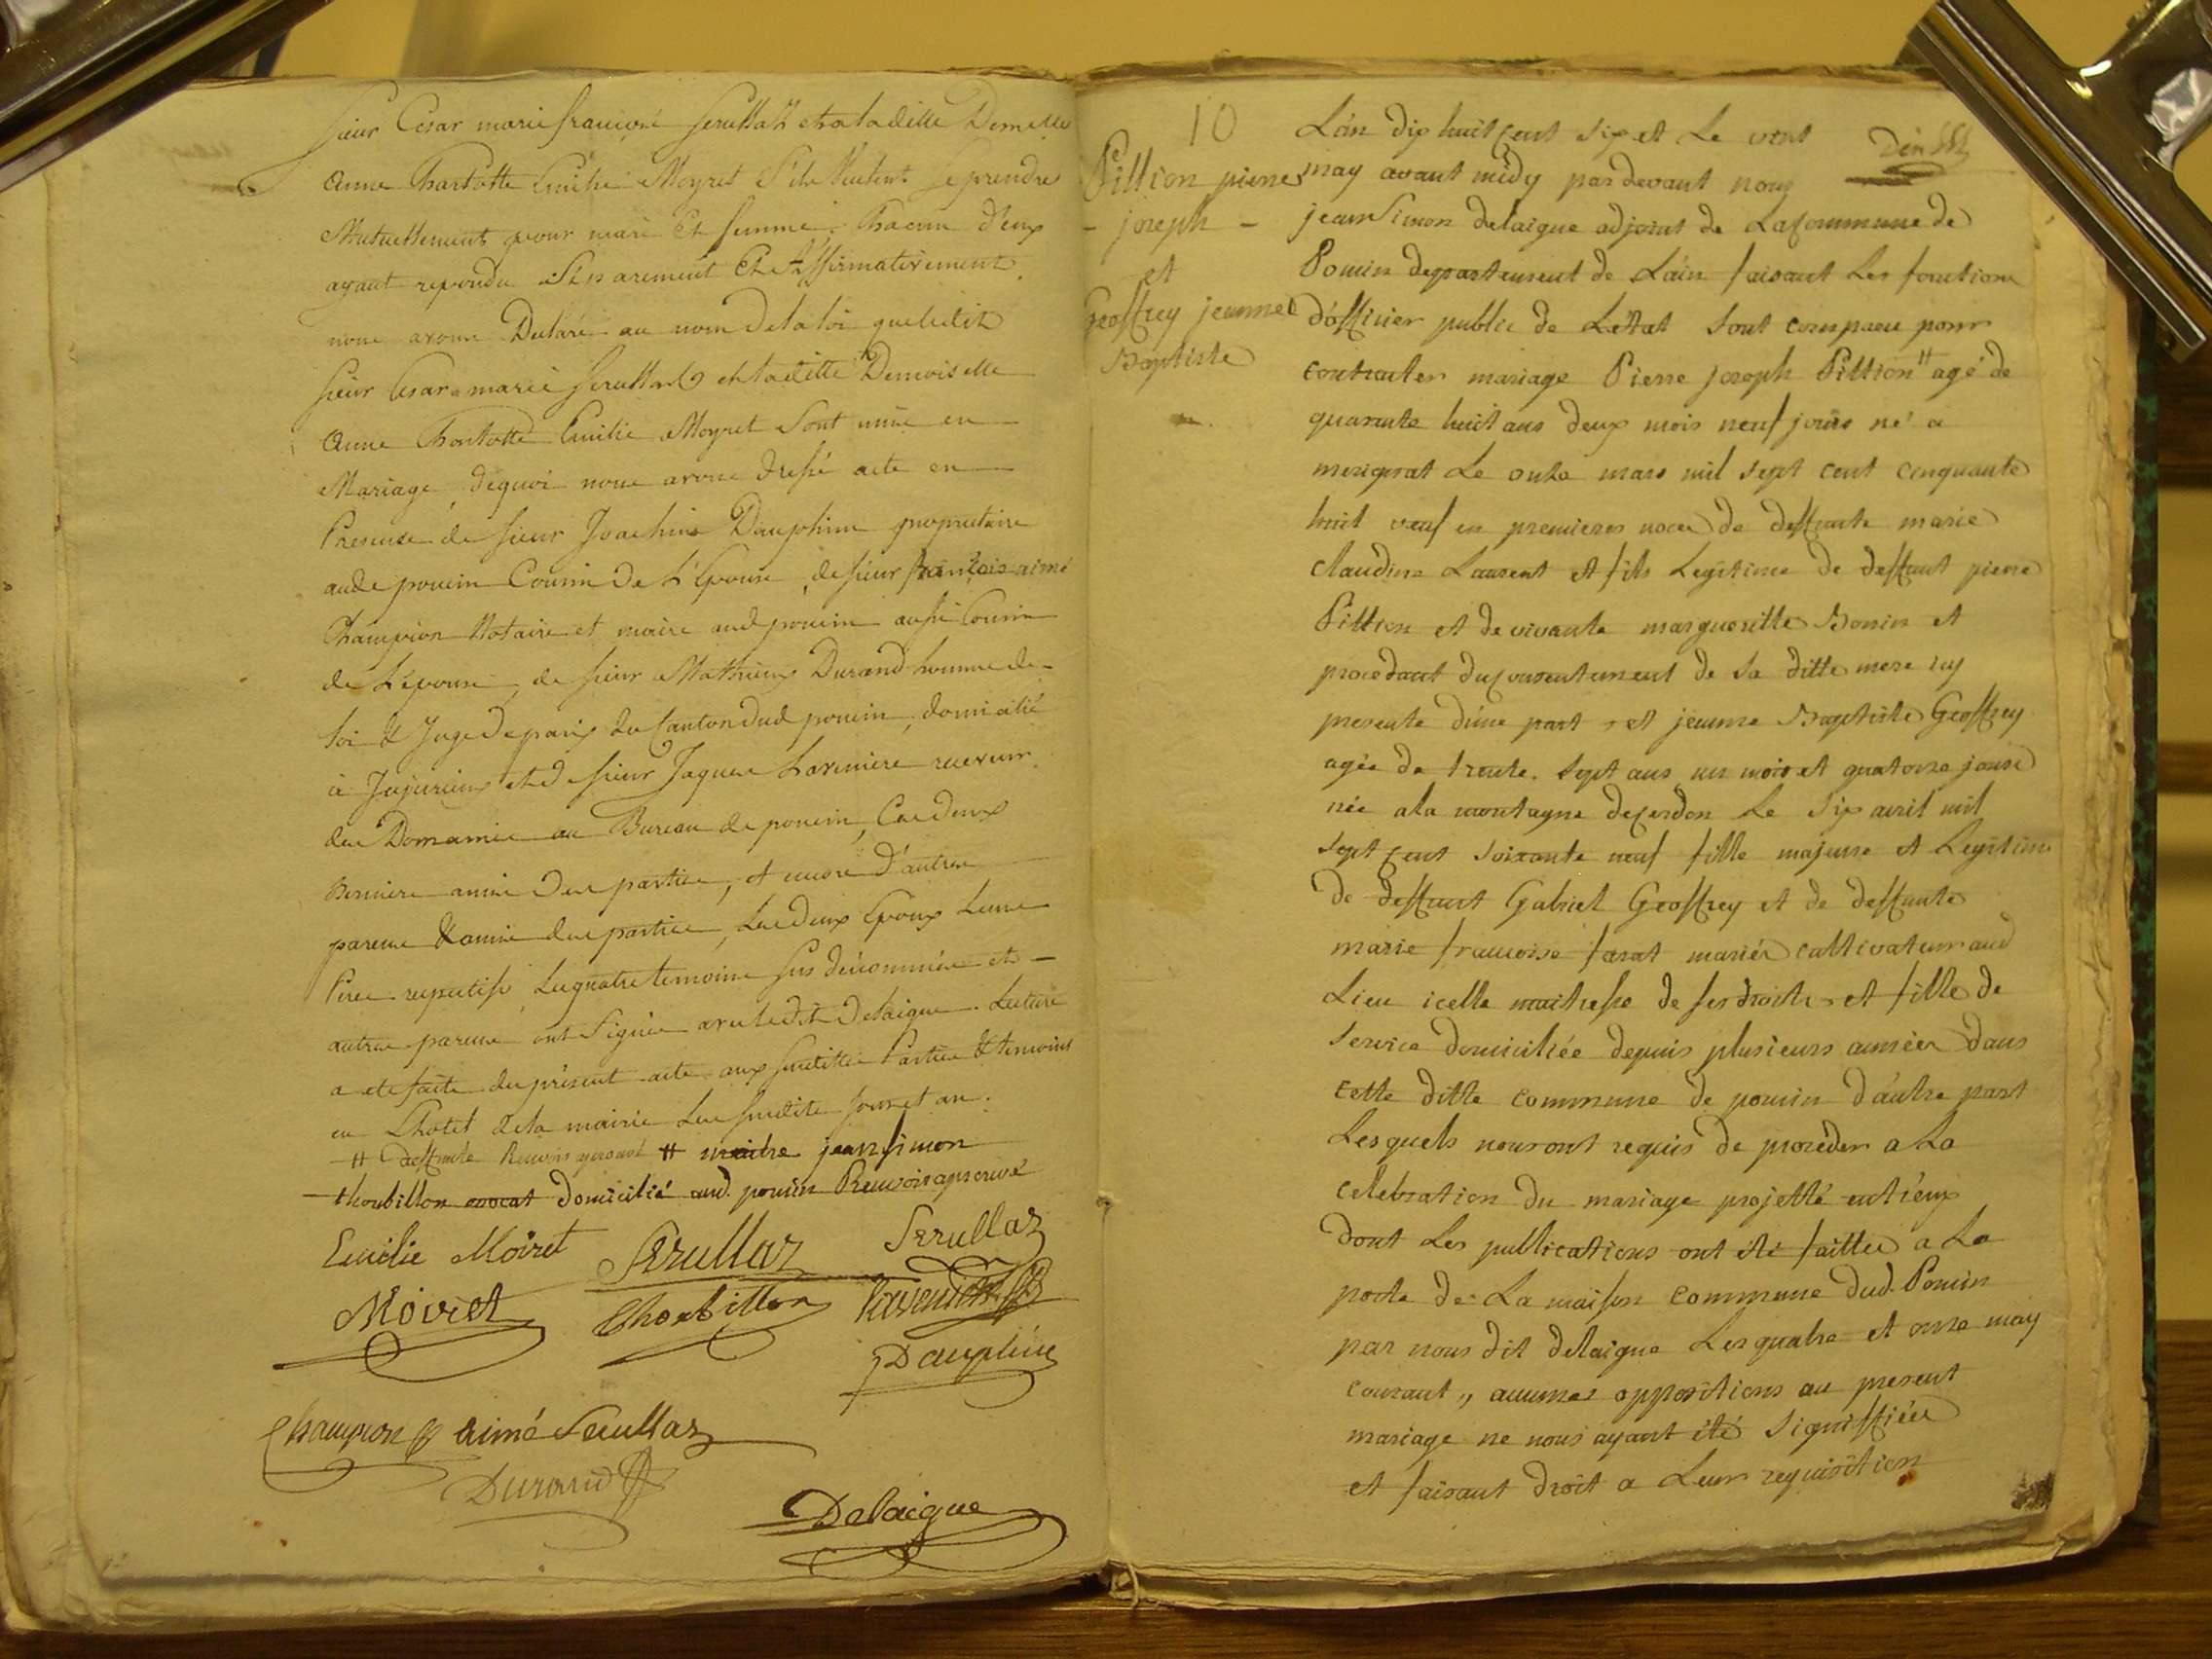 Sieur César marie françois Serullaz et a ladille Demelle
Anne Charlotte Emilie Moyret S'ils Veulent Se prendre
Mutuellement pour mari et femme, Chacun d'eux
ayant repondu Séparement Et Affirmativement,
nous avons Déclaré au nom de la loi que ledit
Sieur César marie Serullaz et ladille Demoiselle
Anne Charlotte Emilie Moyret Sont unis en
Mariage, dequoi nous avons dressé acte en
Presence de sieur Joachim Dauphine propriétaire
aude poncin Cousin de L'Epouse, de sieur françois aimé
Champion Notaire et maire aud poncin aussi Cousin
de L'épouse, de sieur Mathieu Durand homme de
loi & Juge de paix du Canton dud poncin, domicilié
à Jujurieux et de sieur Jaques Lavenière receveur
des Domaines au Bureau de poncin, Ces deux
Derniers amis des parties, et encore d'autres
parens & amis des parties, Les deux Epoux Leurs
Peres respectifs, Les quatre temoins sus dénommés et
autres parens ont Signés avec ledit Delaigue. Lecture
a été faite du présent acte aux susdittes Parties & temoins
en L'hotel de la mairie Les susdits jour et an.
# deffunte Renvoi aprouvé # maitre jean simon
thoubillon avocat domicilié aud. poncin Renvoi aprouvé
Emilie Moiret Serullaz Serullaz
Moiret Thoubillon
Dauphine
Champion aimé Serullaz
Durand
Delaigue
10
Pittion pierre
- joseph -
et
Geoffrey jeanne
Baptiste
L'an dix huit cent six et le vent
may avant midy par devant nous
jean Simon delaigue adjoint de La Commune de
Poncin departement de L'ain faisant Les fonctions
d'officier public de L'état Sont comparu pour
contracter mariage Pierre joseph Pittion # agé de
quarante huit ans deux mois neuf jours né a
merignat Le onze mars mil sept cent cinquante
huit veuf en premieres noces de deffunte marie
claudine Laurent et fils Legitime de deffunt pierre
Pittion et de vivante margueritte Bonin et
procédant du consentement de sa ditte mere icy
presente d'une part, et jeanne Baptiste Geoffrey
agée de trente sept ans un mois et quatorze jours
née a la montagne de cerdon Le six avril mil
sept cent soixante neuf fille majeure et Legitime
de deffunt Gabriel Geoffrey et de deffunte
marie francoise farat mariés cultivateur aud
Lieu icelle maitresse de ses droits et fille de
service domiciliée depuis plusieurs années dans
cette ditte commune de poncin d'autre part
Lesquels nous ont requis de procéder a La
celebration du mariage projetté entr'eux
dont Les publications ont été faittes a La
porte de La maison commune dud. Poncin
par nous dit delaigue Les quatre et onze may
courant, aucunes oppositions au present
mariage ne nous ayant été signiffiées
et faisant droit a Leur requisition